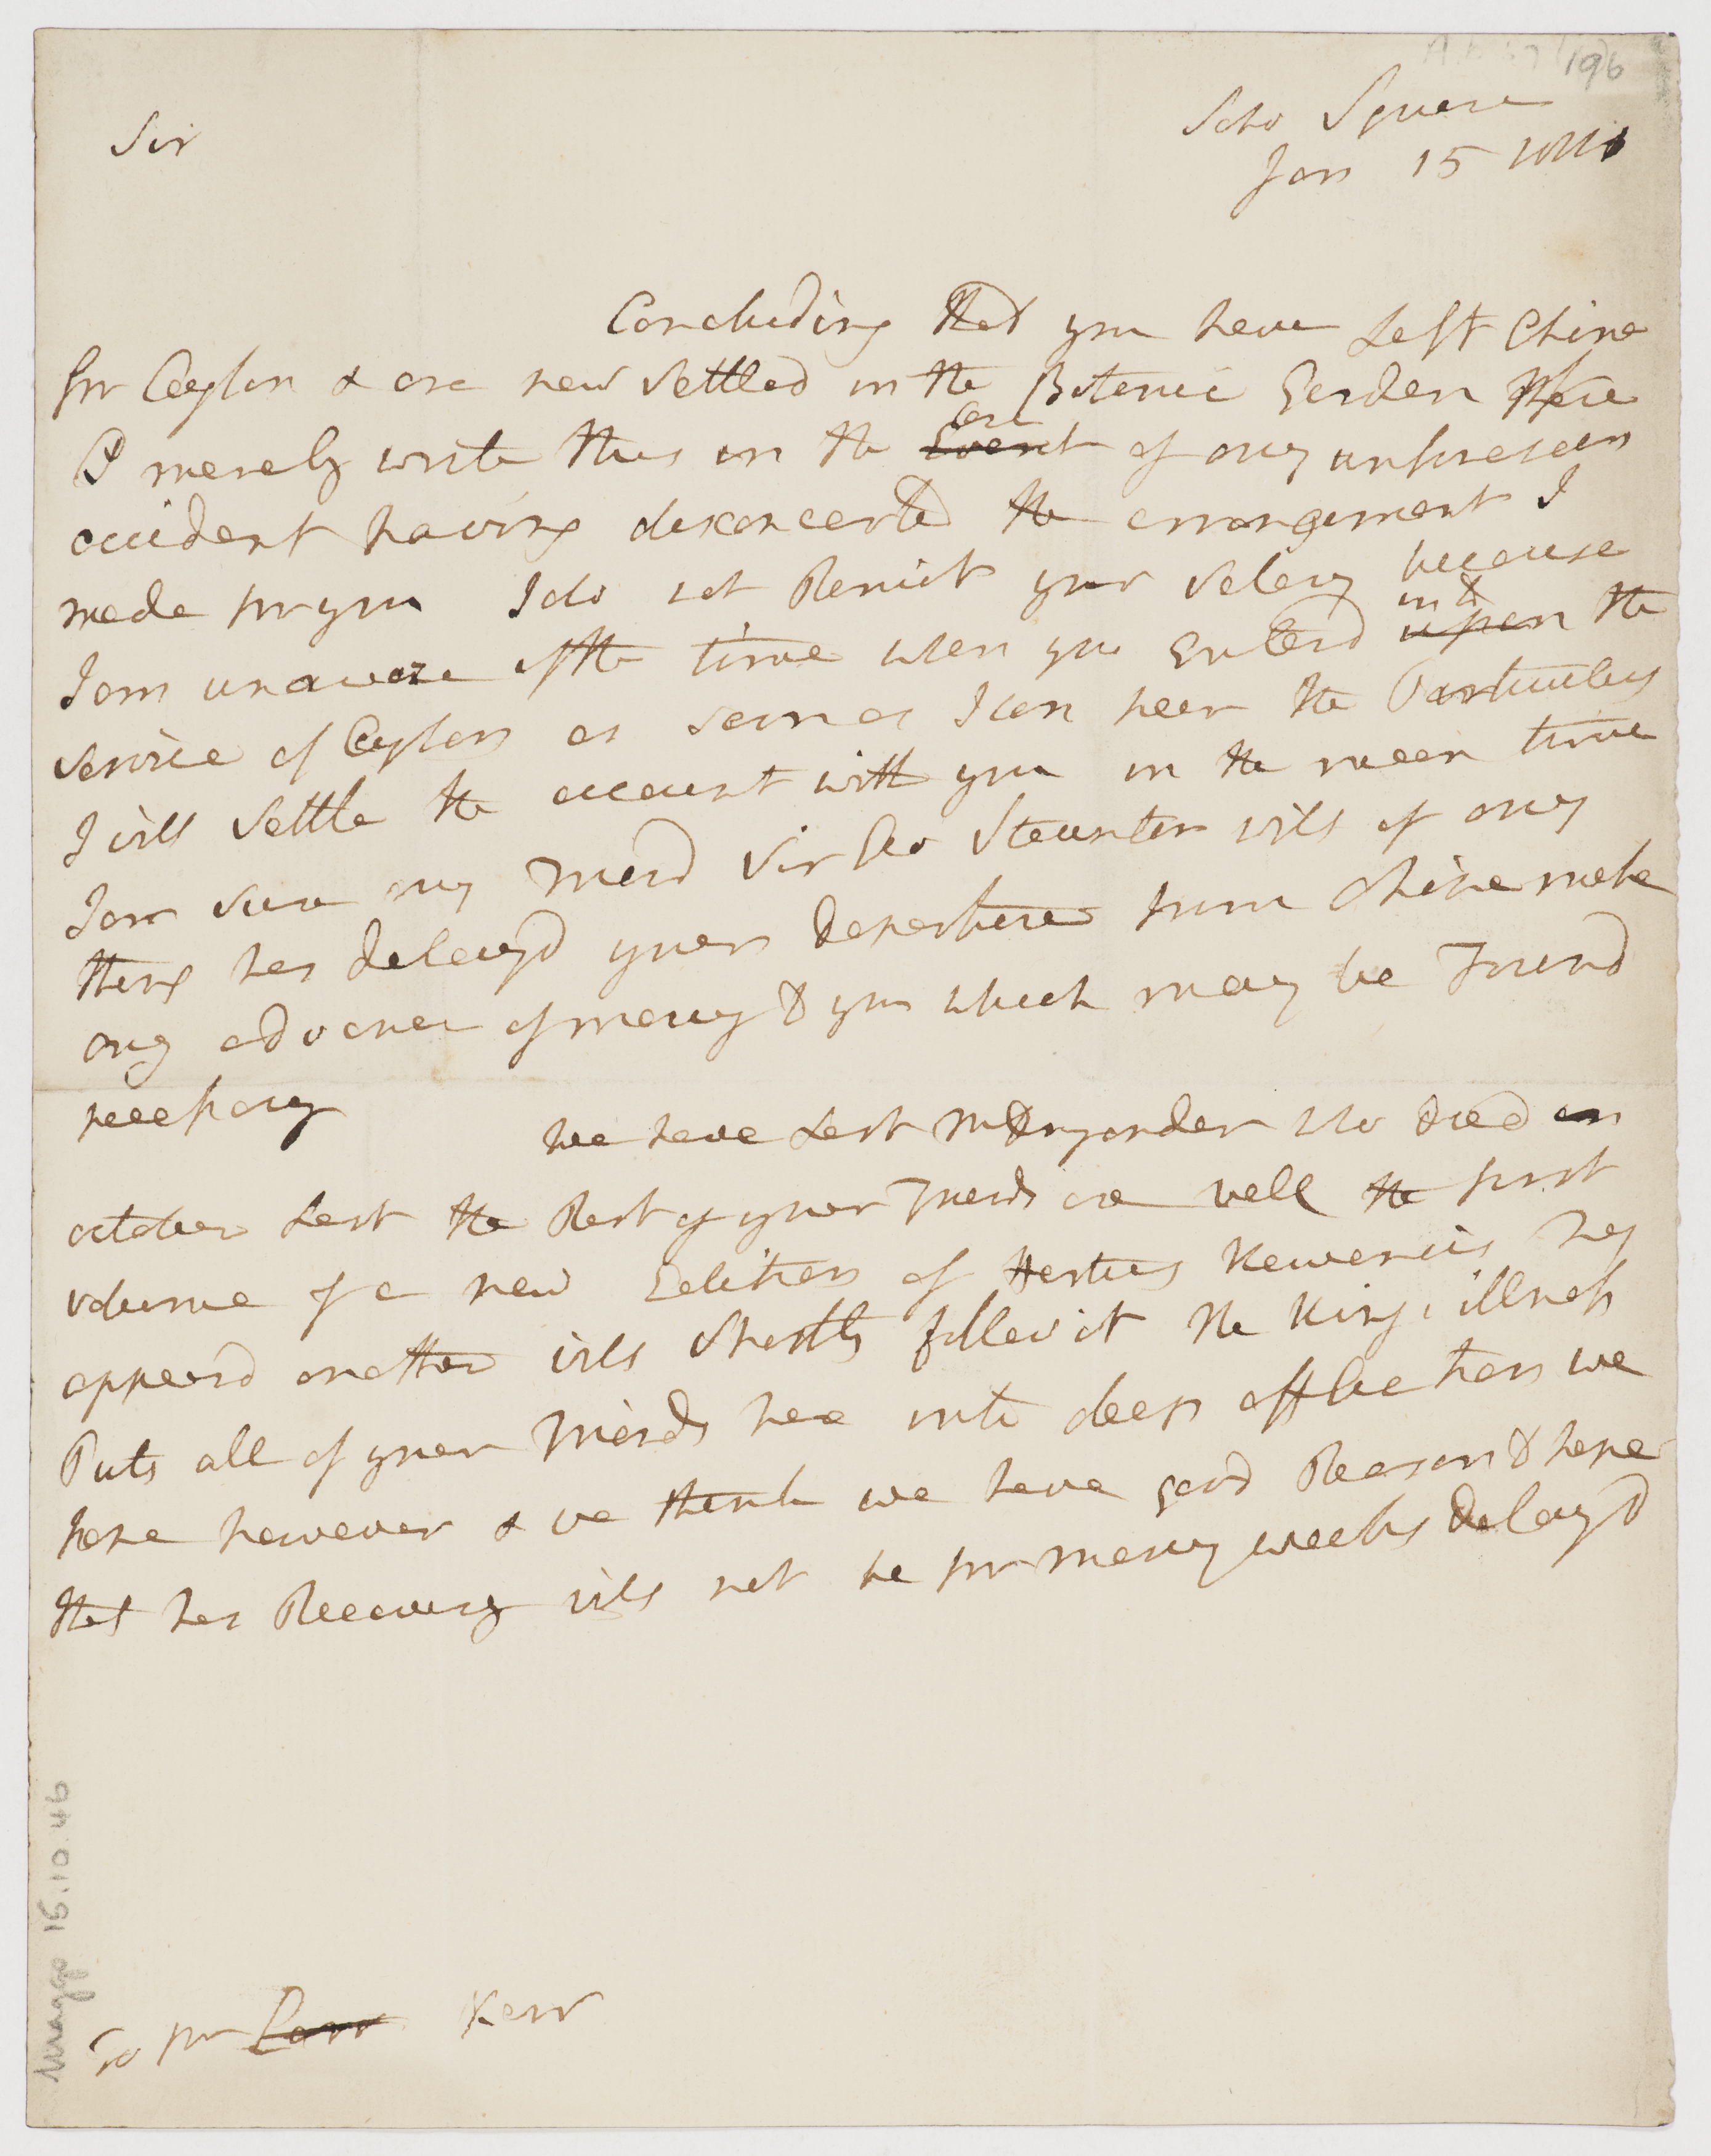 196
Soho Square
Jan 15 1811
Sir
Concluding that you have Left China
for Ceylon & are now settled in the Botanic Garden there
I merely write this in the Event Case of any unforeseen
accident having disconcerted the arrangement I
made for you I do not Remit your Salary because
I am unaware of the time when you Enterd upon into the
service of Ceylon as soon as I can hear the Particulars
I will settle the account with you in the mean time
I am sure my Friend Sir Geo Staunton will if any
thing has delayd your departure from China make
any advance of money to you which may be Found
necessary
we have Lost Mr Dryander who died in
october Last the Rest of your Friends are well the first
volume of a new Edition of Hortus Kewensis has
appeard another will shortly follow it The Kings illness
Puts all of your Friends here into deep affliction we
hope however & we think we have good Reason to hope
that his Recovery will not be for many weeks delayd
To Mr Carr Kerr
Maggs 15.10.46